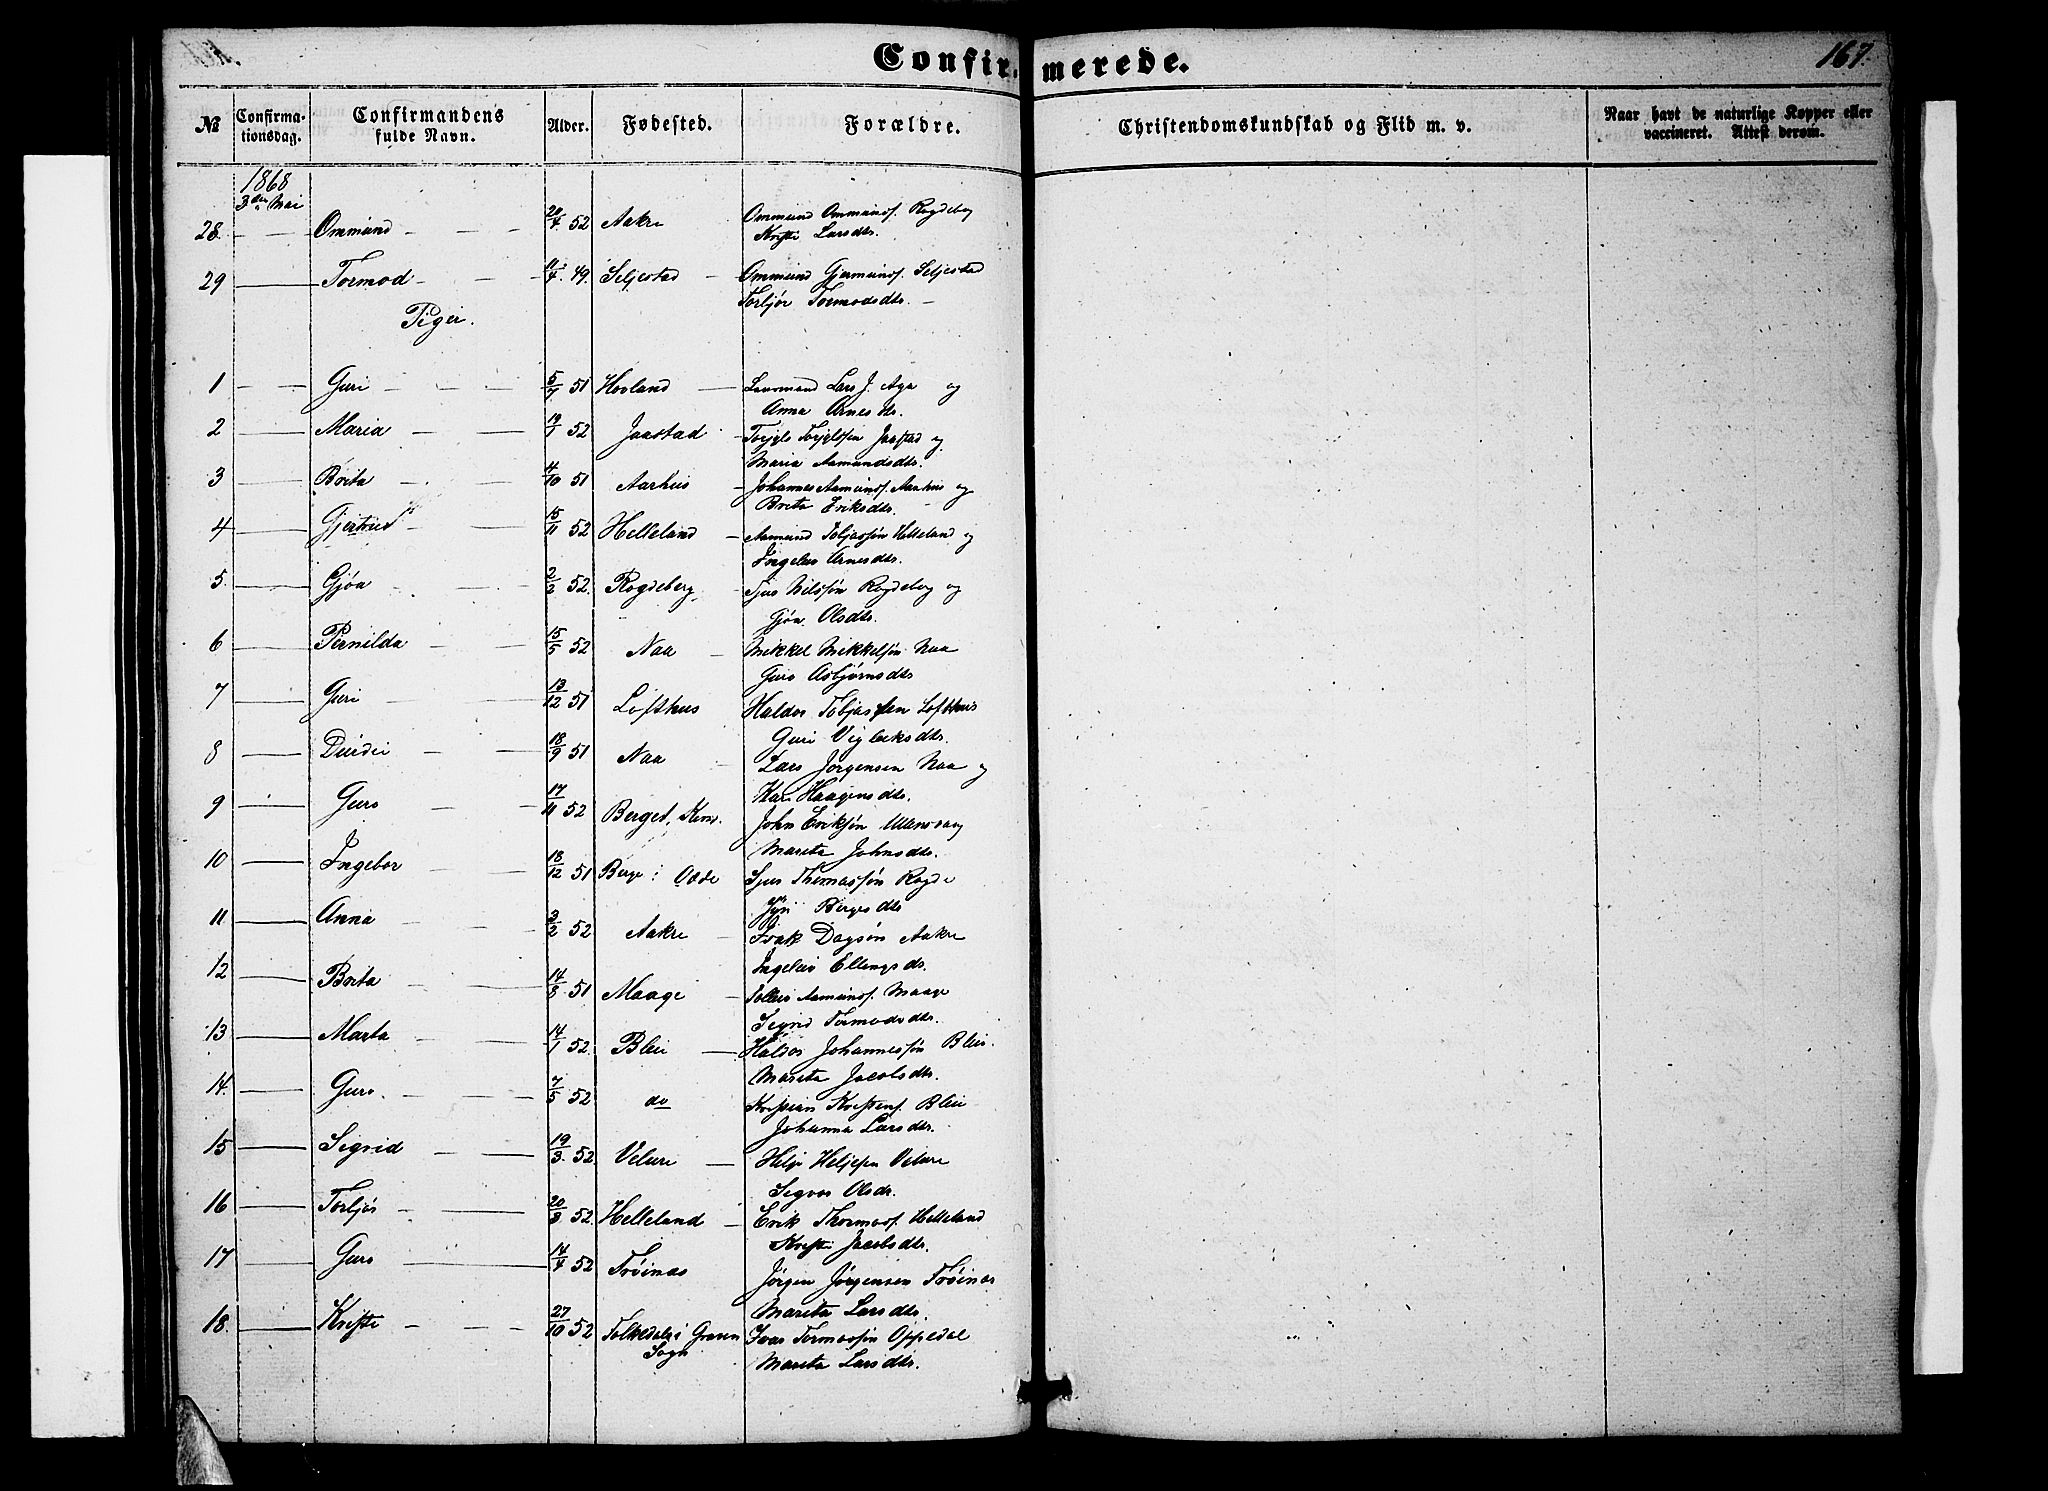 Confirmerede.
167.
№ Confirma-tionsdag. Confirmandens fulde Navn. Alder. Fødested. Forældre. Christendomskundskab og Flid m. v. Naar havt de naturlige Kopper eller vaccineret. Attest derom.
1868
3den Mai
28. — — Ommund — — — 20/4 52 Aakre Ommund Ommunds. Rogdeberg
Kristi Larsdtr.
29 — Tormod — — 11/4. 49. Seljestad — Ommund Gjermunds. Seljestad
Torbjør Tormodsdtr. —
Piger.
1 — — Guri — — — 5/7 51 Hovland — Lars J. Aga og
Anna Arnesdtr.
2 — Maria — — 19/7 52 Jaastad — Torjgls Torjglssen Jaastad og
Maria Aamundsdtr.
3 — Brita — — 4/10 51 Aarhus — Johannes Aamunds. Aarhus og
Brita Eriksdtr.
4 — Gjertrud — — 15/11 52 Helleland — Aamund Tobjassøn Helleland og
Ingeleiv Arnesdtr.
5. — Gjøa — — 2/2 52. Rogdeberg — Sjur Nilssøn Rogdeberg og
Gjøa Olsdtr.
6 — Pernilda — 15/5 52 Naa — Mikkel Mikkelsøn Naa
Guro Asbjørnsdtr
7 — Guri — — 13/12 51 Lofthus Haldor Tobjassen Lofthus
Guri Vigleiksdtr.
8 — Durdei — — 18/9 51 Naa — Lars Jørgensen Naa og
Kari Haagensdtr.
9 — Guro — — 17/11 52 Berget, John Eriksøn Ullensvang
Marita Johnsdtr.
10 — Ingebor — 18/12 51 Berge i Odde Sjur Thomassøn Rogde
Bergesdtr
11 — Anna — — 3/2 52 Aakre — Isak Dagsøn Aakre
Ingeleiv Ellingsdr.
12 — Brita — — 14/8 51 Maage — Tolleiv Aamunds. Maage
Sigrid Tormodsdtr.
13 — Marta — — 14/1 52. Bleie — Haldor Johannessøn Bleie.
Marita Jacobsdtr.
14. — Guro. — — 7/5 52 do Kristian Kristens. Bleie
Johanna Larsdtr.
15 — Sigrid — — 19/3. 52. Velure — Helje Heljesen Velure
Sigvor Olsdr.
16 — Torbjør — — 20/3 52 Helleland — Erik Thormods. Helleland
Kristi Jacobsdtr.
17 — Guro — 14/4 52 Trøinas Jørgen Jørgensen Trøinas
Marita Larsdtr.
18. — Kristi — — — 27/10 52 Folkedal i Graven Sogn Ivar Tormodssøn Oppedal
Marita Larsdtr.